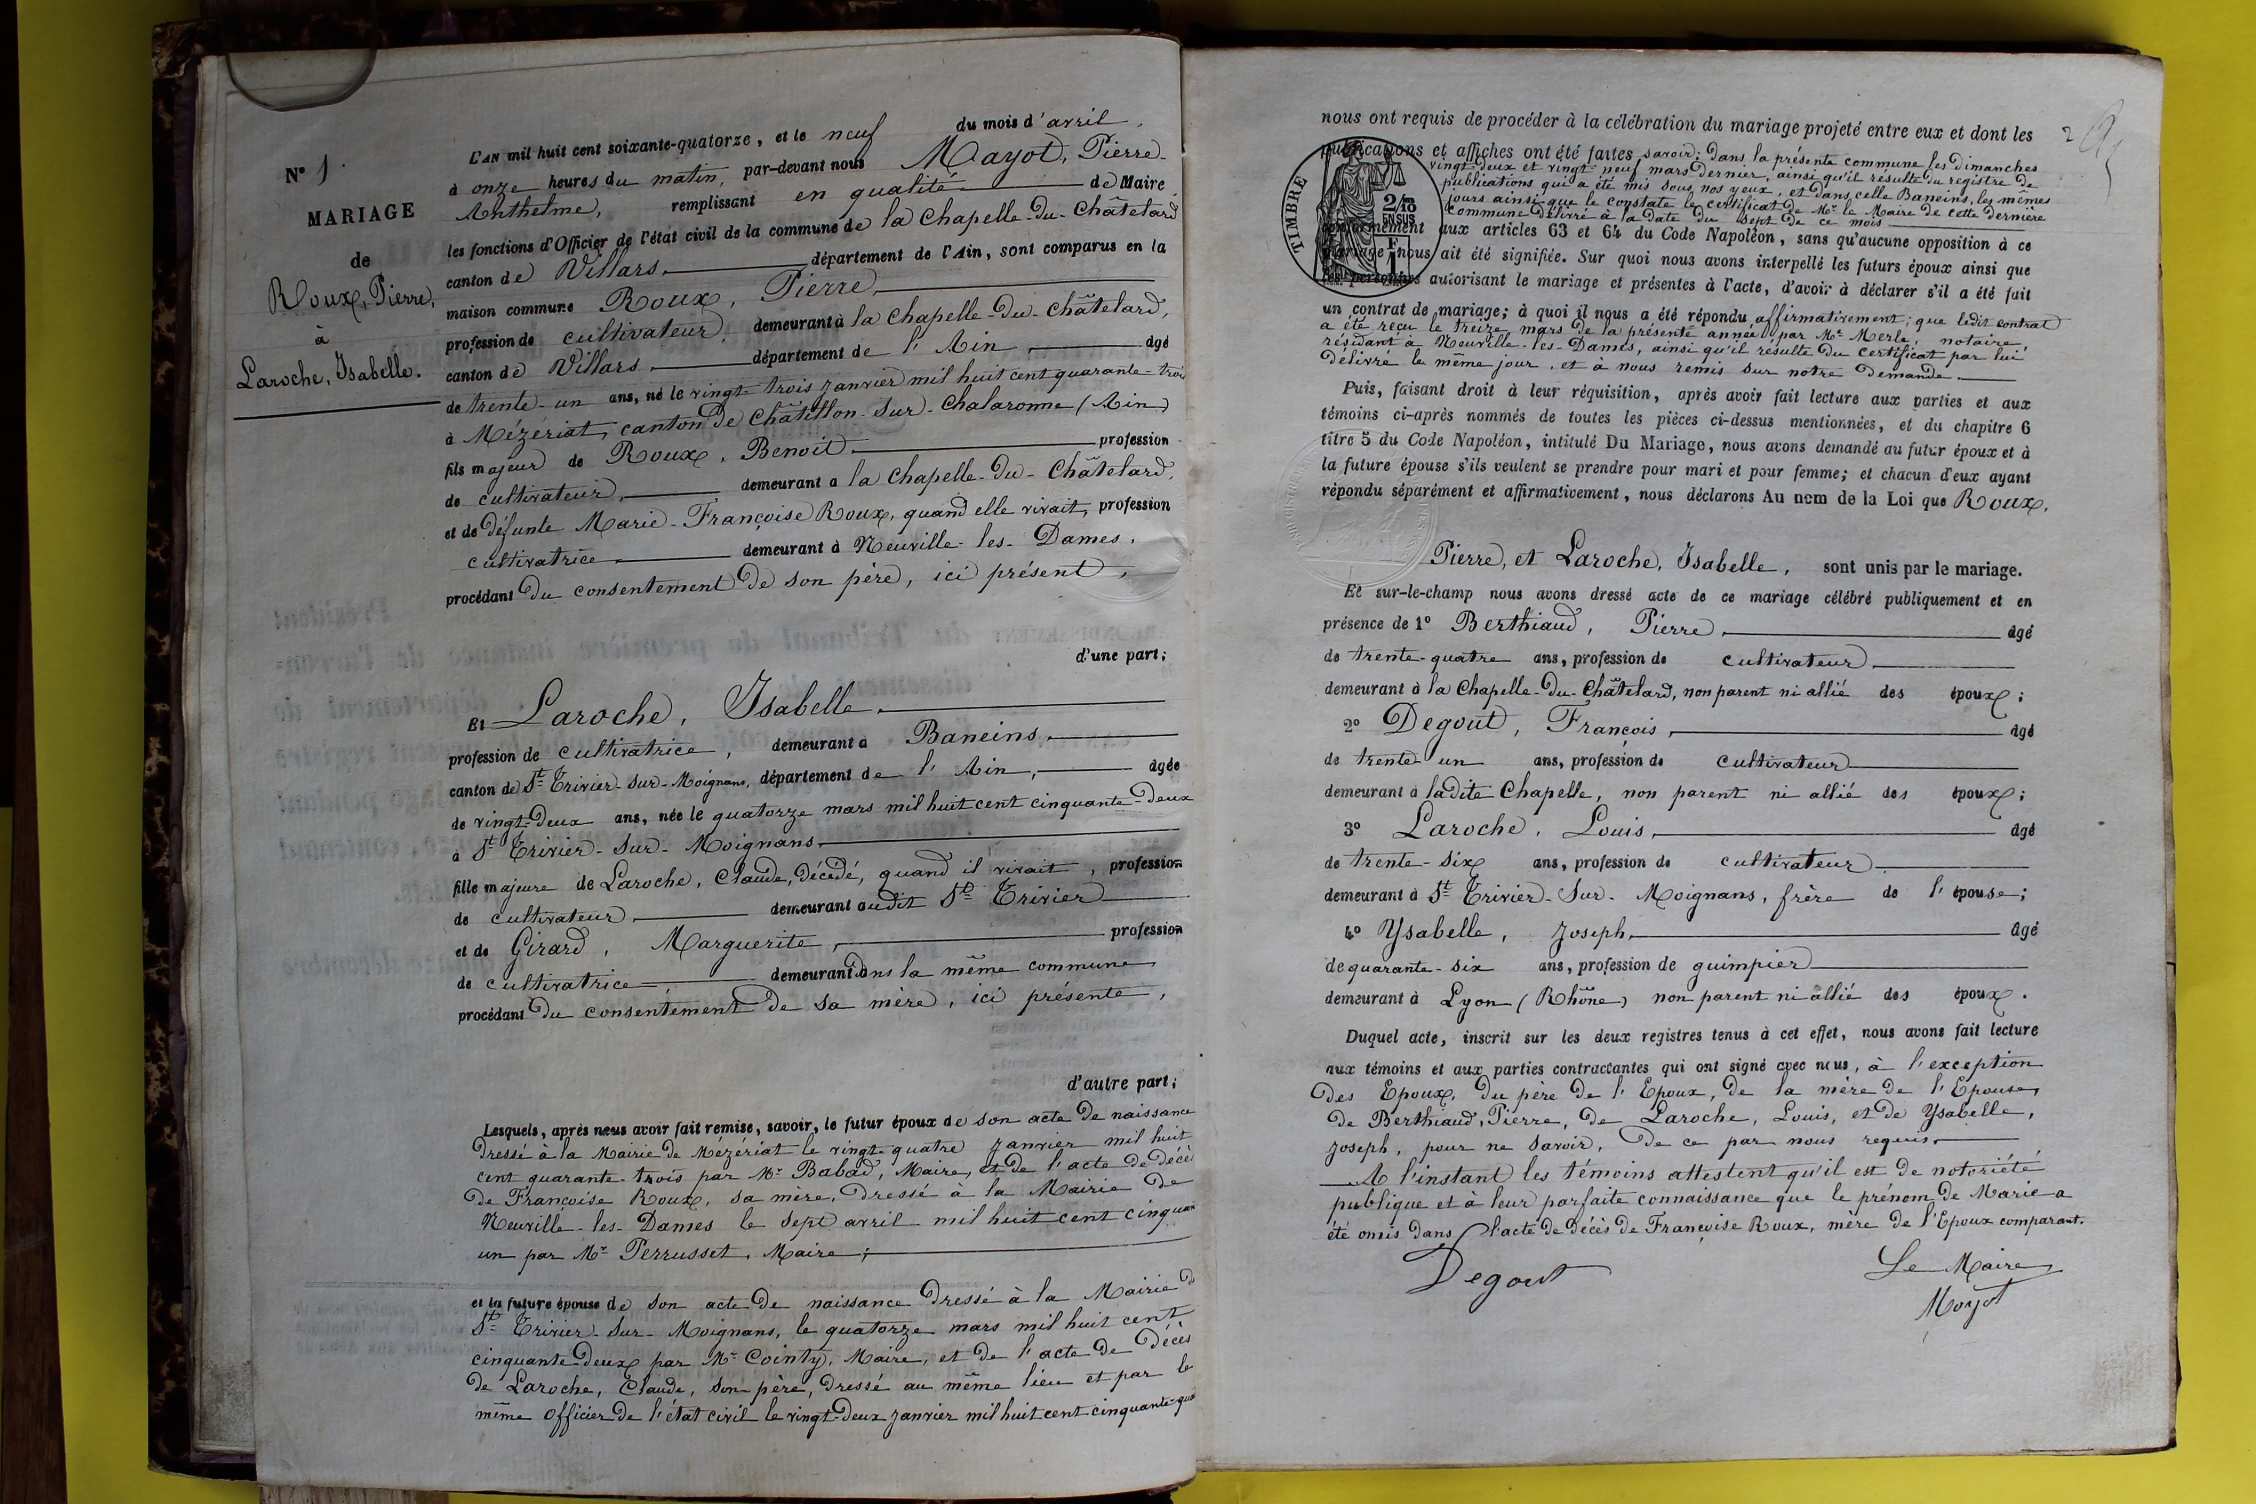 N° 1.
MARIAGE
de
Roux, Pierre,
à
Laroche, Isabelle.
L'AN mil huit cent soixante-quatorze, et le neuf du mois d'avril,
à onze heures du matin, par-devant nous Mayot, Pierre-
Anthelme, remplissant en qualité de Maire
les fonctions d'Officier de l'état civil de la commune de la Chapelle-du-Châtelard
canton de Villars, département de l'Ain, sont comparus en la
maison commune Roux, Pierre,
profession de cultivateur, demeurant à la Chapelle-du-Châtelard,
canton de Villars, département de l'Ain, âgé
de trente-un ans, né le vingt-trois janvier mil huit cent quarante-trois
à Mézeriat, canton de Châtillon-sur-Chalaronne (Ain)
fils majeur de Roux, Benoit, profession
de cultivateur, demeurant à la Chapelle-du-Châtelard,
et de défunte Marie-Françoise Roux, quand elle vivait, profession
cultivatrice, demeurant à Neuville-les-Dames,
procédant du consentement de son père, ici présent,
d'une part;
Et Laroche, Isabelle,
profession de cultivatrice, demeurant à Baneins,
canton de St Trivier-sur-Moignans, département de l'Ain, âgée
de vingt-deux ans, née le quatorze mars mil huit cent cinquante-deux
à St Trivier-sur-Moignans,
fille majeure de Laroche, Claude, décédé, quand il vivait, profession
de cultivateur, demeurant audit St Trivier
et de Girard, Marguerite, profession
de cultivatrice, demeurant dans la même commune
procédant du consentement de sa mère, ici présente,
d'autre part;
Lesquels, après nous avoir fait remise, savoir, le futur époux de son acte de naissance
dressé à la Mairie de Mézériat le vingt-quatre janvier mil huit
cent quarante-trois par Mr Babad, Maire, et de l'acte de décès
de Françoise Roux, sa mère, dressé à la Mairie de
Neuville-les-Dames le sept avril mil huit cent cinquan
un par Mr Perrusset, Maire;
et la future épouse de son acte de naissance dressé à la Mairie de
St Trivier-sur-Moignans, le quatorze mars mil huit cent
cinquante-deux par Mr Cointy, Maire, et de l'acte de décès
de Laroche, Claude, son père, dressé au même lieu et par le
même officier de l'état civil le vingt-deux janvier mil huit cent cinquante-qua
2
nous ont requis de procéder à la célébration du mariage projeté entre eux et dont les
publications et affiches ont été faites, savoir: dans la présente commune les dimanches
vingt-deux et vingt-neuf mars dernier, ainsi qu'il résulte du registre de
publications qui a été mis sous nos yeux, et dans celle Baneins, les mêmes
jours ainsi que le constate le certificat de Mr le Maire de cette dernière
commune délivré à la date du sept de ce mois
conformément aux articles 63 et 64 du Code Napoléon, sans qu'aucune opposition à ce
mariage nous ait été signifiée. Sur quoi nous avons interpellé les futurs époux ainsi que
les personnes autorisant le mariage et présentes à l'acte, d'avoir à déclarer s'il a été fait
un contrat de mariage; à quoi il nous a été répondu affirmativement; que ledit contrat
a été reçu le treize mars de la présente année par Me Merle, notaire,
résidant à Neuville-les-Dames, ainsi qu'il résulte du certificat par lui
délivré le même jour, et à nous remis sur notre demande
TIMBRE
2/10
EN SUS
F
1
Puis, faisant droit à leur réquisition, après avoir fait lecture aux parties et aux
témoins ci-après nommés de toutes les pièces ci-dessus mentionnées, et du chapitre 6
titre 5 du Code Napoléon, intitulé Du Mariage, nous avons demandé au futur époux et à
la future épouse s'ils veulent se prendre pour mari et pour femme; et chacun d'eux ayant
répondu séparément et affirmativement, nous déclarons Au nom de la Loi que Roux,
Pierre, et Laroche, Isabelle, sont unis par le mariage.
Et sur-le-champ nous avons dressé acte de ce mariage célébré publiquement et en
présence de 1° Berthiaud, Pierre, âgé
de trente-quatre ans, profession de cultivateur
demeurant à la Chapelle-du-Châtelard, non parent ni allié des époux;
2° Degout, François, âgé
de trente-un ans, profession de cultivateur
demeurant à ladite Chapelle, non parent ni allié des époux;
3° Laroche, Louis, âgé
de trente-six ans, profession de cultivateur
demeurant à St Trivier-sur-Moignans, frère de l'épouse;
4° Ysabelle, Joseph, âgé
de quarante-six ans, profession de guimpier
demeurant à Lyon (Rhône) non parent ni allié des époux.
Duquel acte, inscrit sur les deux registres tenus à cet effet, nous avons fait lecture
aux témoins et aux parties contractantes qui ont signé avec nous, à l'exception
des Epoux, du père de l'Epoux, de la mère de l'Epouse,
de Berthiaud, Pierre, de Laroche, Louis, et de Ysabelle,
Joseph, pour ne savoir, de ce par nous requis.
A l'instant les témoins attestent qu'il est de notoriété
publique et à leur parfaite connaissance que le prénom de Marie a
été omis dans l'acte de décès de Françoise Roux, mère de l'Epoux comparant.
Degout
Le Maire
Mayot